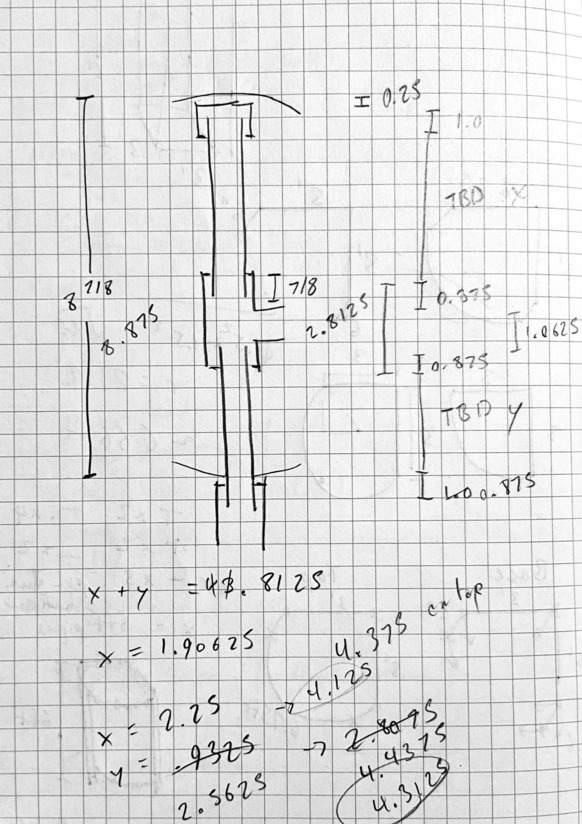 0.25
1.0
TBD X
8 7/8
8.875
7/8
2.8125
0.875
1.0625
0.875
TBD y
1.0 0.875
x + y = 4.8125
x = 1.90625
4.375 on top
x = 2.25 → 4.125
y = .9325 → 2.8075
2.5625
4.4375
4.3125